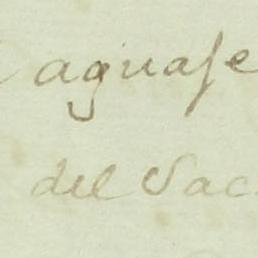 aguase
del Sac